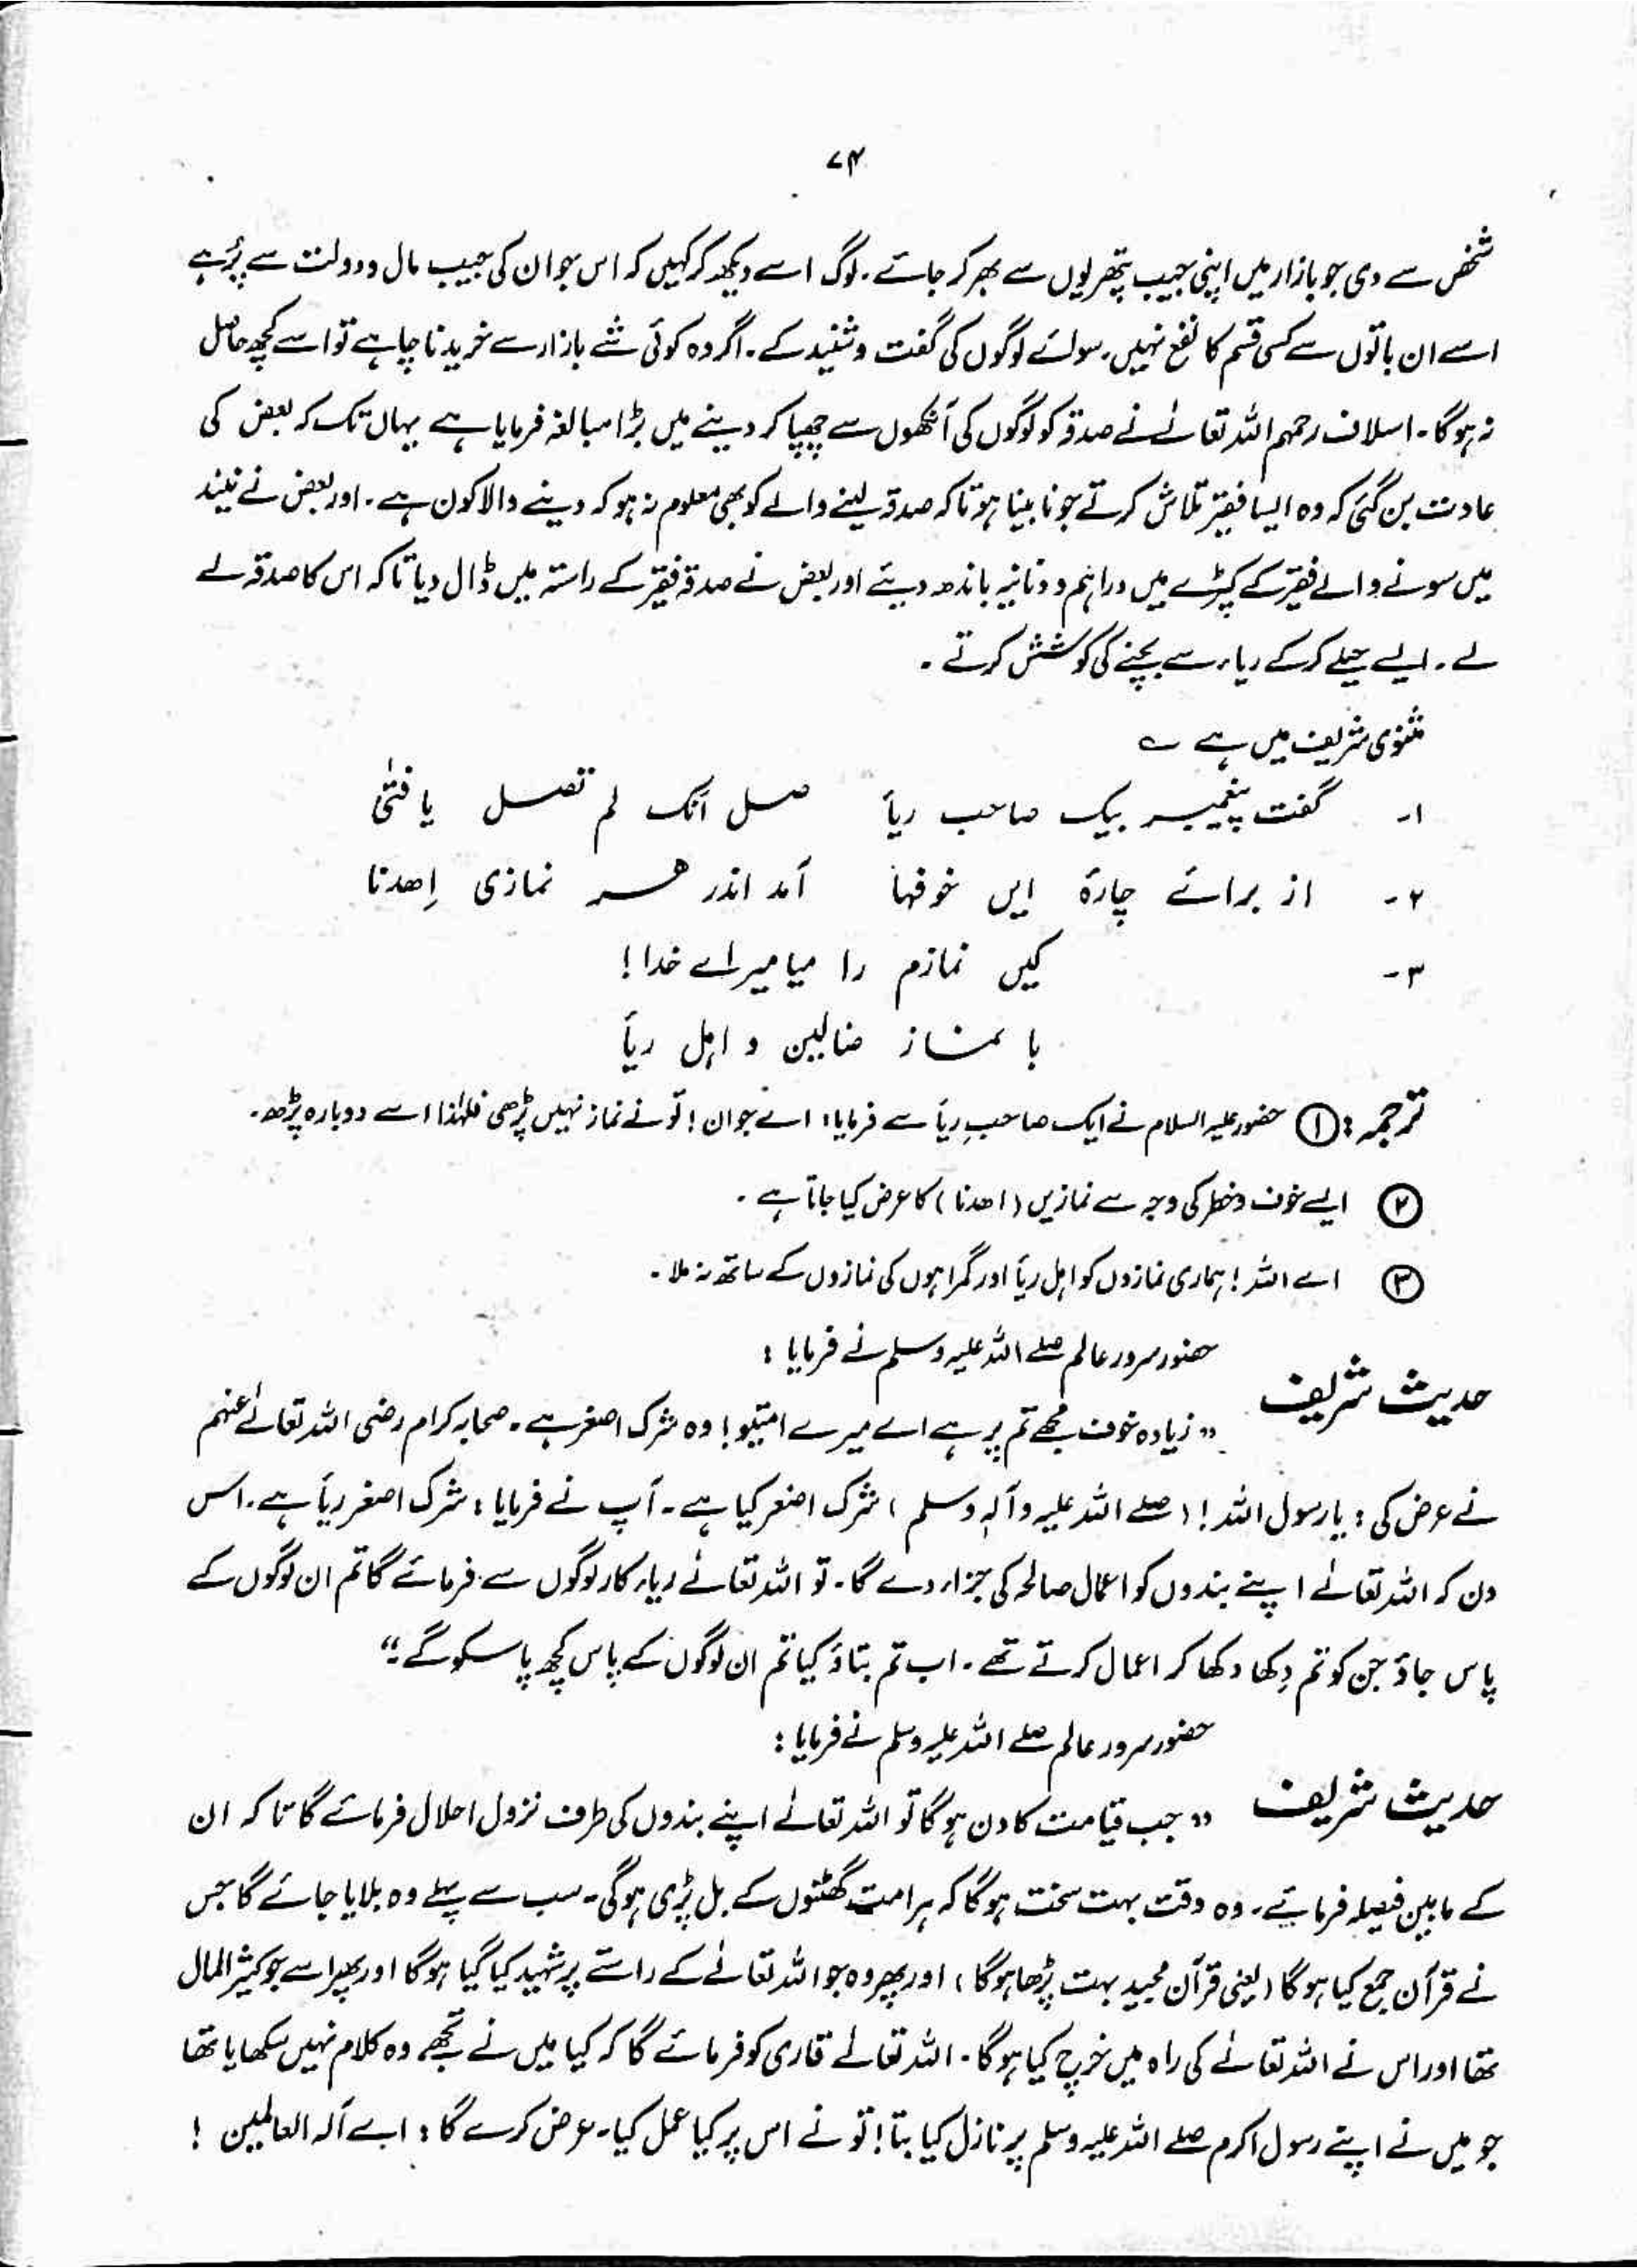 ۷۴
شخص سے دی جو بازار میں اپنی جیب پتھریوں سے بھر کر جائے۔ لوگ اسے دیکھ کر کہیں کہ اس جوان کی جیب مال و دولت سے پُر ہے
اسے ان باتوں سے کسی قسم کا نفع نہیں، سوائے لوگوں کی گفت و شنید کے۔ اگر وہ کوئی شے بازار سے خریدنا چاہے تو اسے کچھ حاصل
نہ ہوگا۔ اسلاف رحمہم اللہ تعالےٰ نے صدقہ کو لوگوں کی آنکھوں سے چھپا کر دینے میں بڑا مبالغہ فرمایا ہے یہاں تک کہ بعض کی
عادت بن گئی کہ وہ ایسا فقیر تلاش کرتے جو نابینا ہوتا کہ صدقہ لینے والے کو بھی معلوم نہ ہو کہ دینے والا کون ہے۔ اور بعض نے نیند
میں سونے والے فقیر کے کپڑے میں دراہم و دنانیر باندھ دیئے اور بعض نے صدقہ فقیر کے راستہ میں ڈال دیا تاکہ اس کا صدقہ لے
لے۔ ایسے حیلے کرکے ریاء سے بچنے کی کوشش کرتے۔
مثنوی شریف میں ہے ؎
۱۔ گفت پیغمبر بیک صاحب ریأ صل انک لم تصل یا فتیٰ
۲۔ از برائے چارۂ ایں خوفہا آمد اندر ہر نمازی اِھدنا
۳۔ کیں نمازم را میامیز اے خدا!
با نماز ضالین و اہل ریأ
ترجمہ: ① حضور علیہ السلام نے ایک صاحبِ ریأ سے فرمایا: اے جوان! تو نے نماز نہیں پڑھی فلہٰذا اسے دوبارہ پڑھ۔
② ایسے خوف و خطر کی وجہ سے نمازیں (اھدنا) کا عرض کیا جاتا ہے۔
③ اے اللہ! ہماری نمازوں کو اہل ریأ اور گمراہوں کی نمازوں کے ساتھ نہ ملا۔
حضور سرور عالم صلے اللہ علیہ وسلم نے فرمایا:
حدیث شریف "زیادہ خوف مجھے تم پر ہے اے میرے امتیو! وہ شرک اصغر ہے۔ صحابہ کرام رضی اللہ تعالےٰ عنہم
نے عرض کی: یا رسول اللہ! (صلے اللہ علیہ وآلہٖ وسلم) شرک اصغر کیا ہے۔ آپ نے فرمایا: شرک اصغر ریأ ہے۔ اس
دن کہ اللہ تعالےٰ اپنے بندوں کو اعمال صالحہ کی جزاء دے گا۔ تو اللہ تعالےٰ ریاء کار لوگوں سے فرمائے گا تم ان لوگوں کے
پاس جاؤ جن کو تم دِکھا دکھا کر اعمال کرتے تھے۔ اب تم بتاؤ کیا تم ان لوگوں کے پاس کچھ پا سکو گے؟"
حضور سرور عالم صلے اللہ علیہ وسلم نے فرمایا:
حدیث شریف "جب قیامت کا دن ہوگا تو اللہ تعالےٰ اپنے بندوں کی طرف نزول اجلال فرمائے گا تاکہ ان
کے مابین فیصلہ فرمائیے۔ وہ وقت بہت سخت ہوگا کہ ہر امت گھٹنوں کے بل پڑی ہوگی۔ سب سے پہلے وہ بلایا جائے گا جس
نے قرآن جمع کیا ہوگا (یعنی قرآن مجید بہت پڑھا ہوگا) اور پھر وہ جو اللہ تعالےٰ کے راستے پر شہید کیا گیا ہوگا اور پھر اسے جو کثیر المال
تھا اور اس نے اللہ تعالےٰ کی راہ میں خرچ کیا ہوگا۔ اللہ تعالےٰ قاری کو فرمائے گا کہ کیا میں نے تجھے وہ کلام نہیں سکھایا تھا
جو میں نے اپنے رسول اکرم صلے اللہ علیہ وسلم پر نازل کیا بتا! تو نے اس پر کیا عمل کیا۔ عرض کرے گا: اے آلہ العالمین!